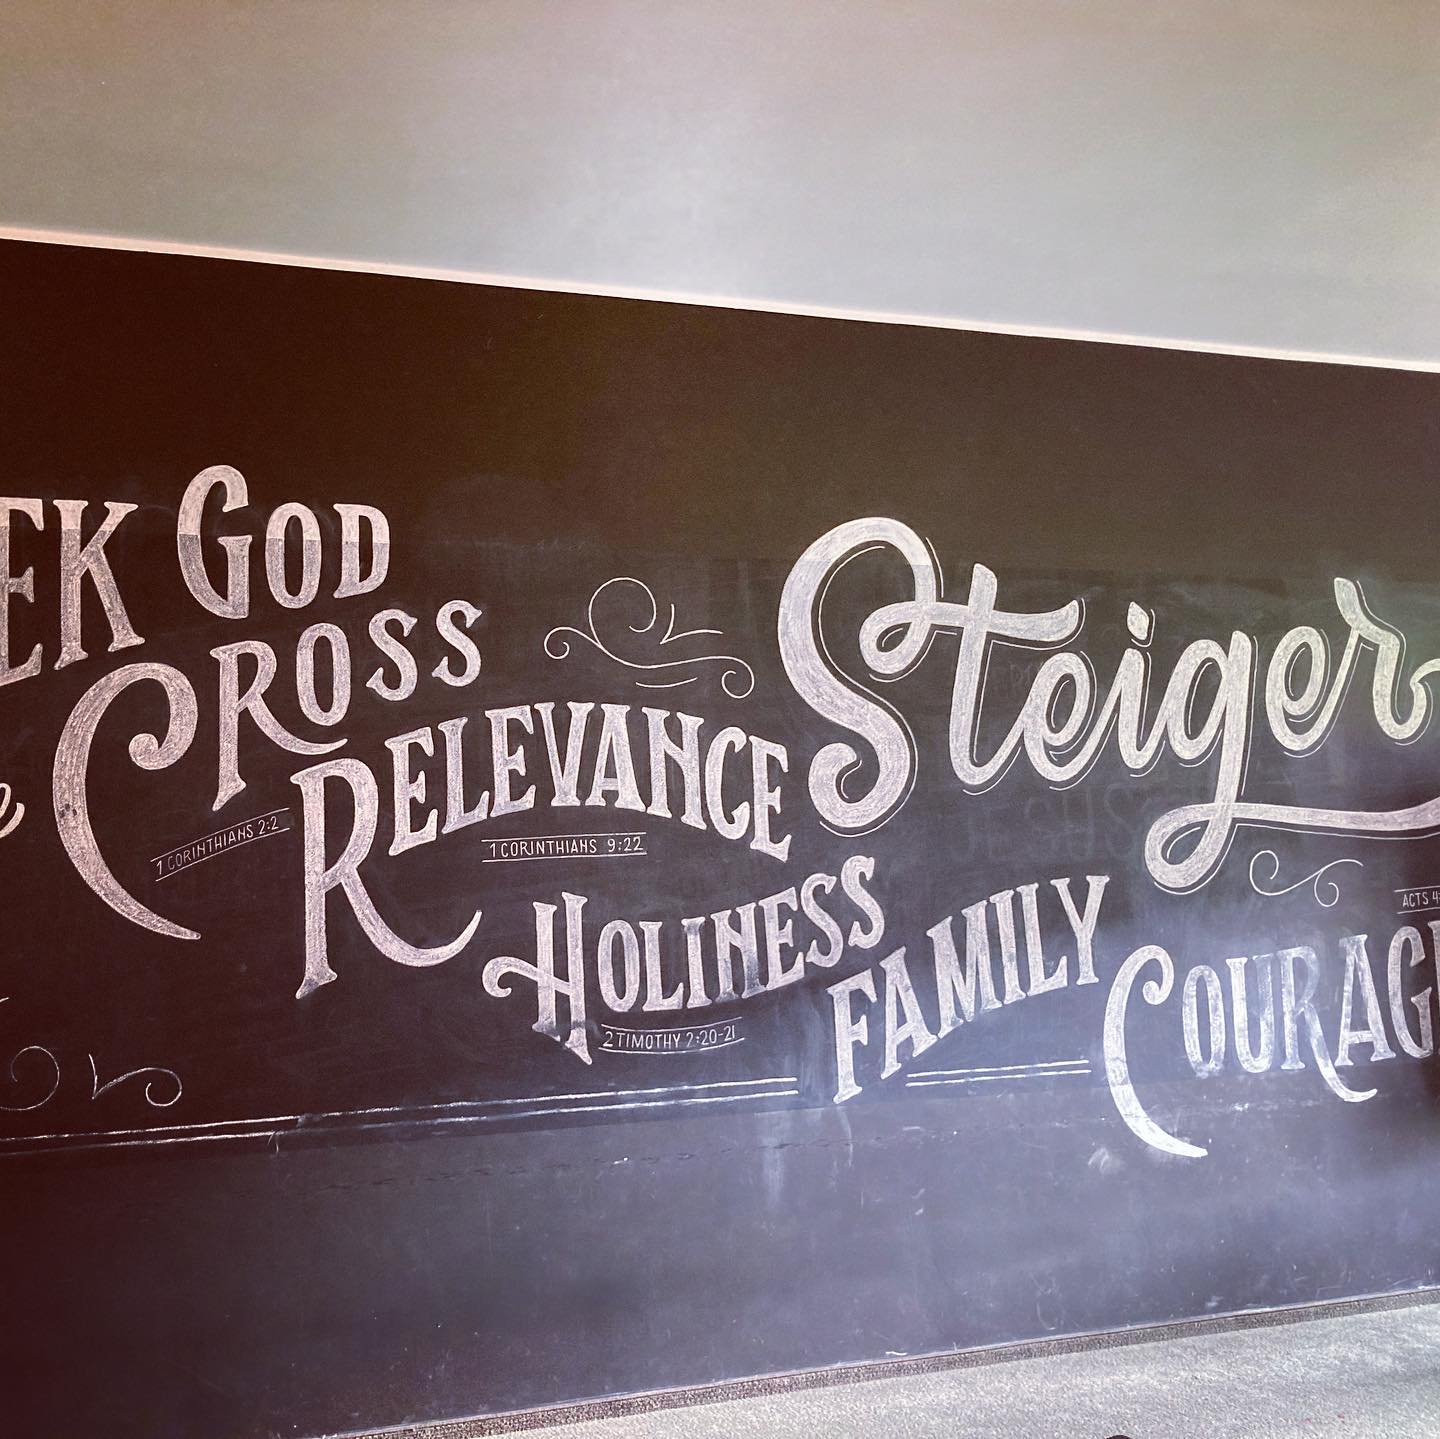 EEK GOD
e CROSS
1 CORINTHIANS 2:2
RELEVANCE
1 CORINTHIANS 9:22
Steiger
HOLINESS
2 TIMOTHY 2:20-21
FAMILY
ACTS 4:
COURAGE